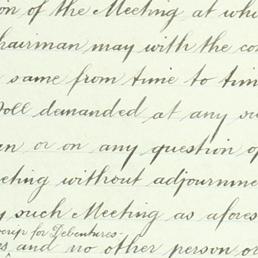 on of the Meeting at whi
hairman may with the co
same from time to tim
Poll demanded at any su
an or on any question of
eting without adjournme
y such Meeting as afores
scrip for Debentures
es and no other person or